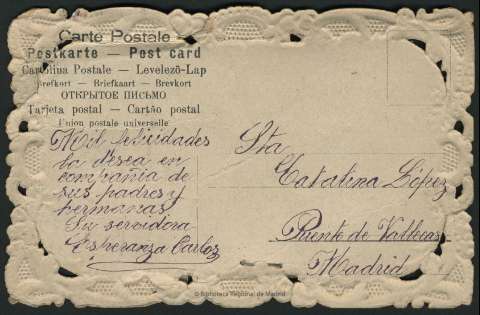 Carte Postale
Postkarte — Post card
Cartolina Postale — Levelező-Lap
Brefkort — Briefkaart — Brevkort
ОТКРЫТОЕ ПИСЬМО
Tarjeta postal — Cartão postal
Union postale universelle
Mil felicidades
la desea en
compañia de
sus padres y
hermanas
Su servidora
Esperanza Carlos
Sta
Catalina López
Puente de Vallecas
Madrid
© Biblioteca Regional de Madrid